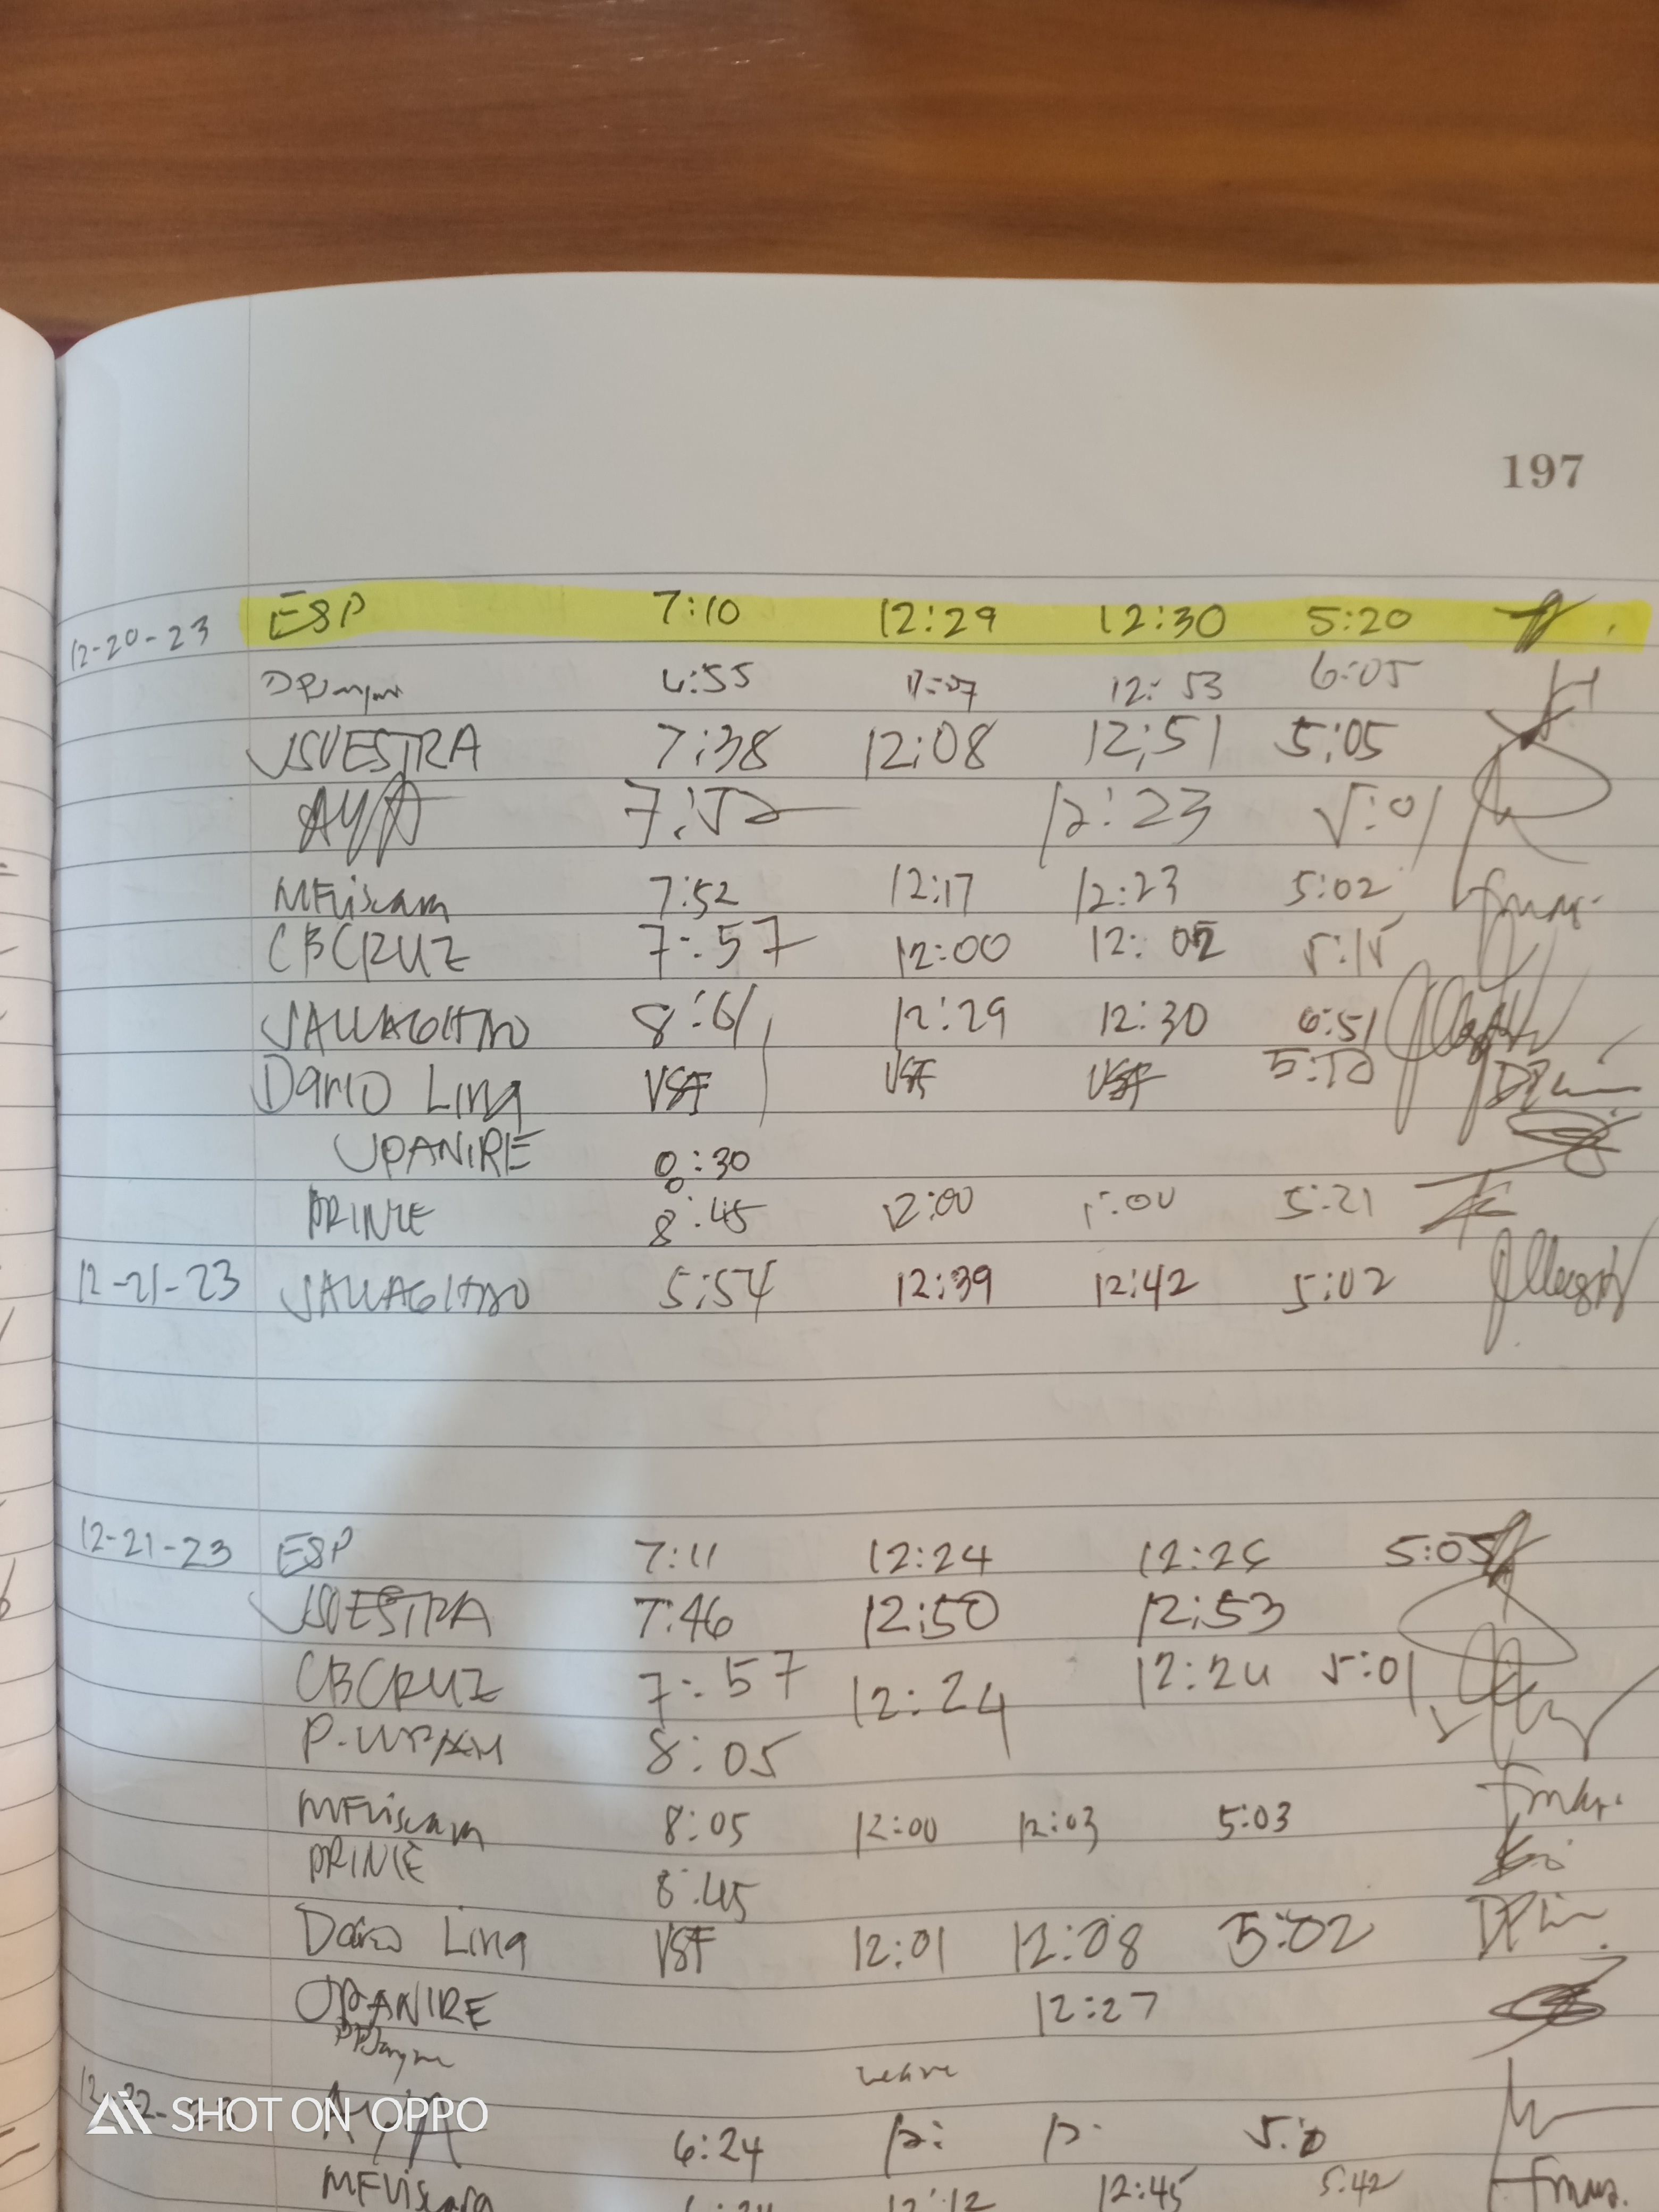 197
12-20-23 ESP 7:10 12:29 12:30 5:20
6:55 12:53 6:05
JSVESTRA 7:38 12:08 12:51 5:05
AYA 7:52 12:23 5:01
MFViscara 7:52 12:17 12:23 5:02
CBCRUZ 7:57 12:00 12:02 5:15
8:01 12:29 12:30 6:51
Dario Ling VSF VSF VSF 5:10
JPANIRE 8:30
PRINCE 8:45 12:00 1:00 5:21
12-21-23 5:54 12:39 12:42 5:02
12-21-23 ESP 7:11 12:24 12:25 5:05
JSVESTRA 7:46 12:50 12:53
CBCRUZ 7:57 12:24 12:24 5:01
8:05
MFViscara 8:05 12:00 12:03 5:03
PRINCE 8:45
Dario Ling VSF 12:01 12:08 5:02
JPANIRE 12:27
leave
AYA 6:24
MFViscara 12:12 12:45 5:42
SHOT ON OPPO